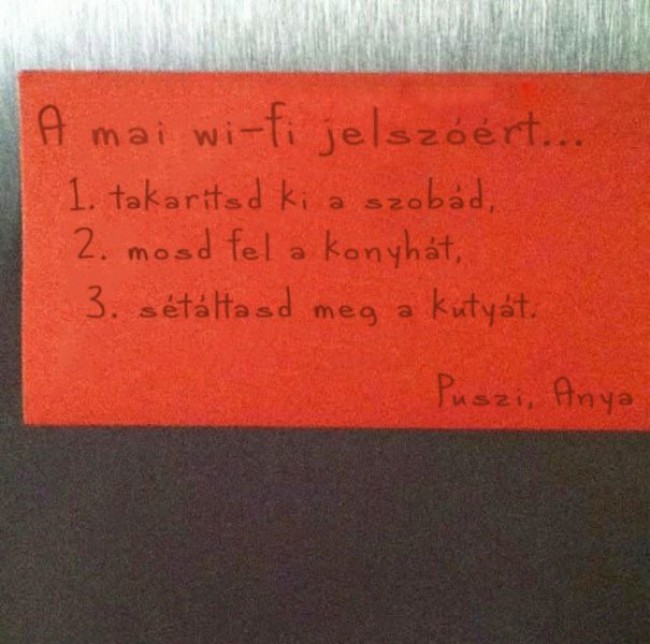 A mai wi-fi jelszóért...
1. takarítsd ki a szobád,
2. mosd fel a konyhát,
3. sétáltasd meg a kutyát.
Puszi, Anya